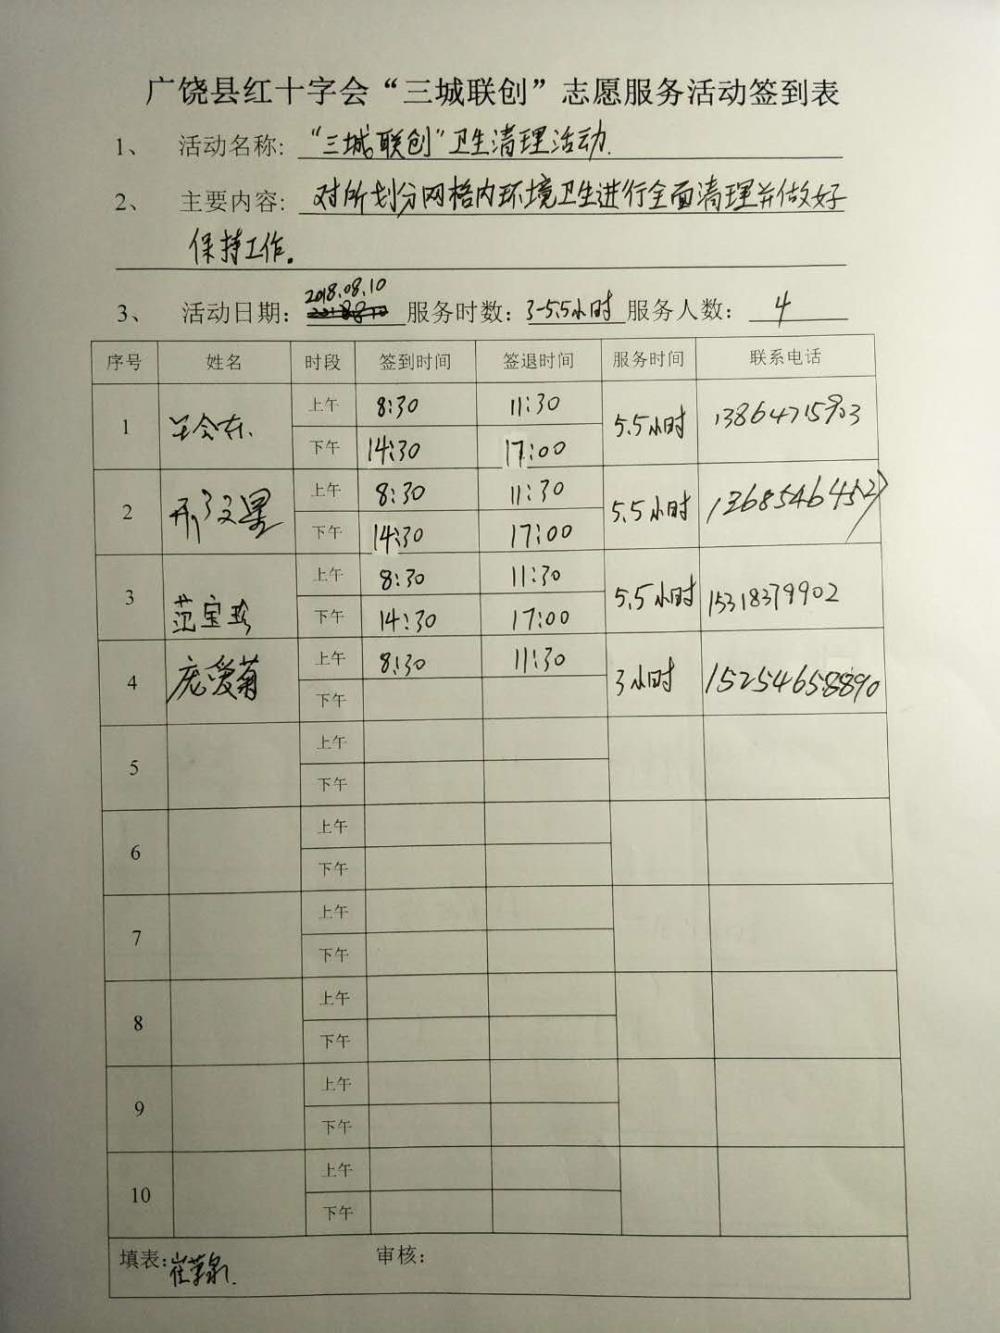 广饶县红十字会“三城联创”志愿服务活动签到表
1、 活动名称: “三城联创”卫生清理活动.
2、 主要内容: 对所划分网格内环境卫生进行全面清理并做好
保持工作.
2018.08.10
3、 活动日期: 服务时数: 3-5.5小时 服务人数: 4
序号 姓名 时段 签到时间 签退时间 服务时间 联系电话
上午 8:30 11:30
1 5.5小时 13864715903
下午 14:30 17:00
上午 8:30 11:30
2 5.5小时
下午 14:30 17:00
上午 8:30 11:30
3 范宝珍 5.5小时 15318379902
下午 14:30 17:00
上午 8:30 11:30
4 庞爱菊 3小时 15254658890
下午
上午
5
下午
上午
6
下午
上午
7
下午
上午
8
下午
上午
9
下午
上午
10
下午
填表: 审核: